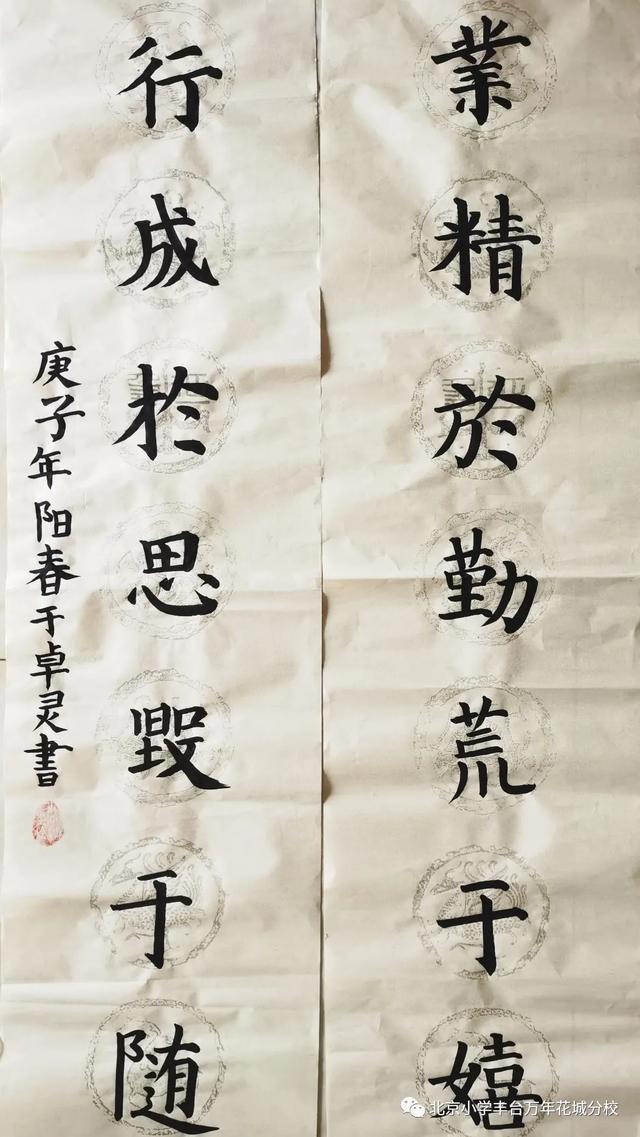 業精於勤荒于嬉
行成於思毀于随
庚子年阳春于卓灵書
北京小学丰台万年花城分校